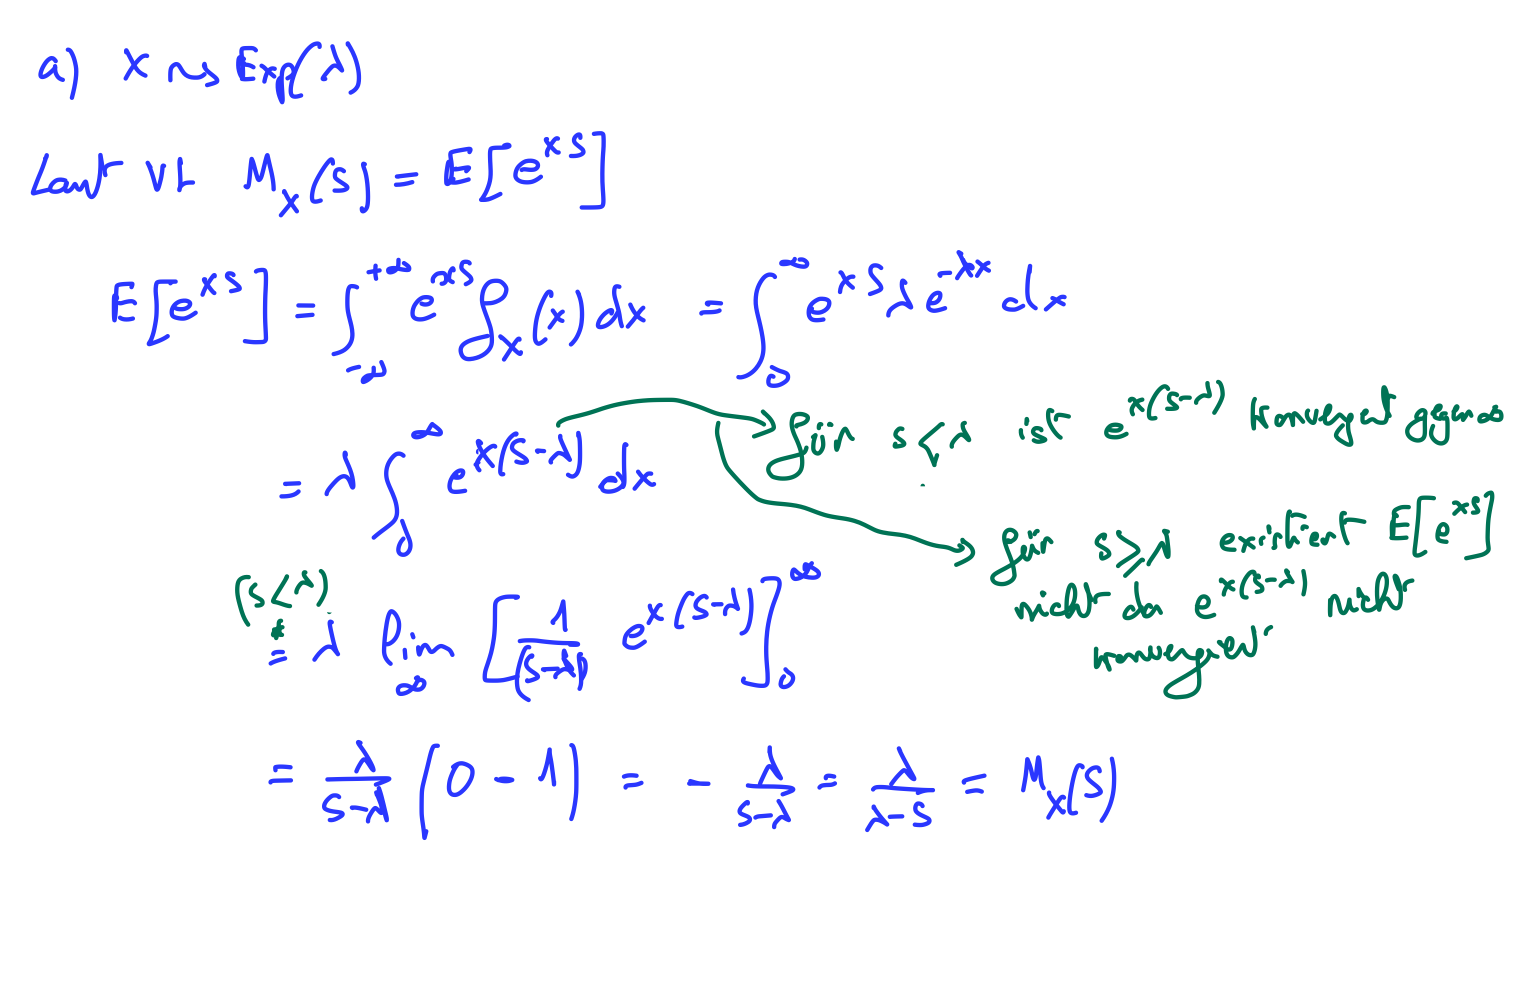 a) X ⇝ Exp(λ)
Laut VL M_X(s) = E[e^{XS}]
E[e^{XS}] = ∫_{-∞}^{+∞} e^{xs} f_X(x) dx = ∫_0^∞ e^{xs} λ e^{-λx} dx
= λ ∫_0^∞ e^{x(s-λ)} dx
→ für s < λ ist e^{x(s-λ)} konvergent gegen 0
→ für s ≥ λ existiert E[e^{xs}]
nicht da e^{x(s-λ)} nicht
konvergiert
(s < λ)
= λ lim_∞ [1/(s-λ) e^{x(s-λ)}]_0^∞
= λ/(s-λ) (0 - 1) = - λ/(s-λ) = λ/(λ-s) = M_X(s)